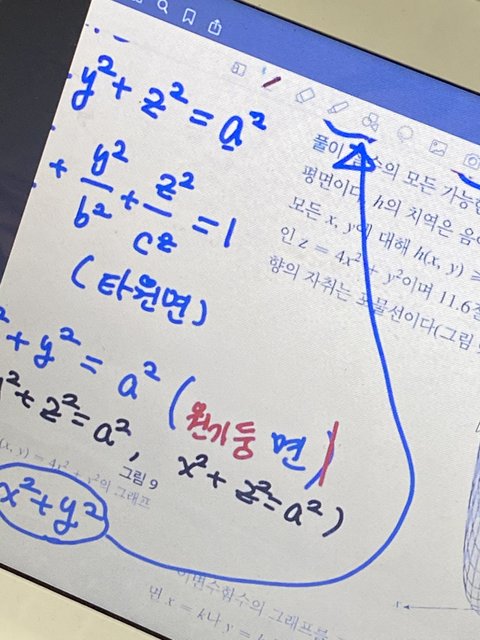 y² + z² = a²
+ y²/b² + z²/c² = 1
(타원면)
² + y² = a² (원기둥 면)
y² + z² = a², x² + z² = a²)
x² + y²
풀이
의 모든 가능한
평면이다. h의 치역은 음이
모든 x, y에 대해 h(x, y) ≥
인 z = 4x² + y²이며 11.6절
향의 자취는 포물선이다(그림
그림 9
(x, y) = 4x² + y²의 그래프
이변수함수의 그래프를
면 x = k나 y = k